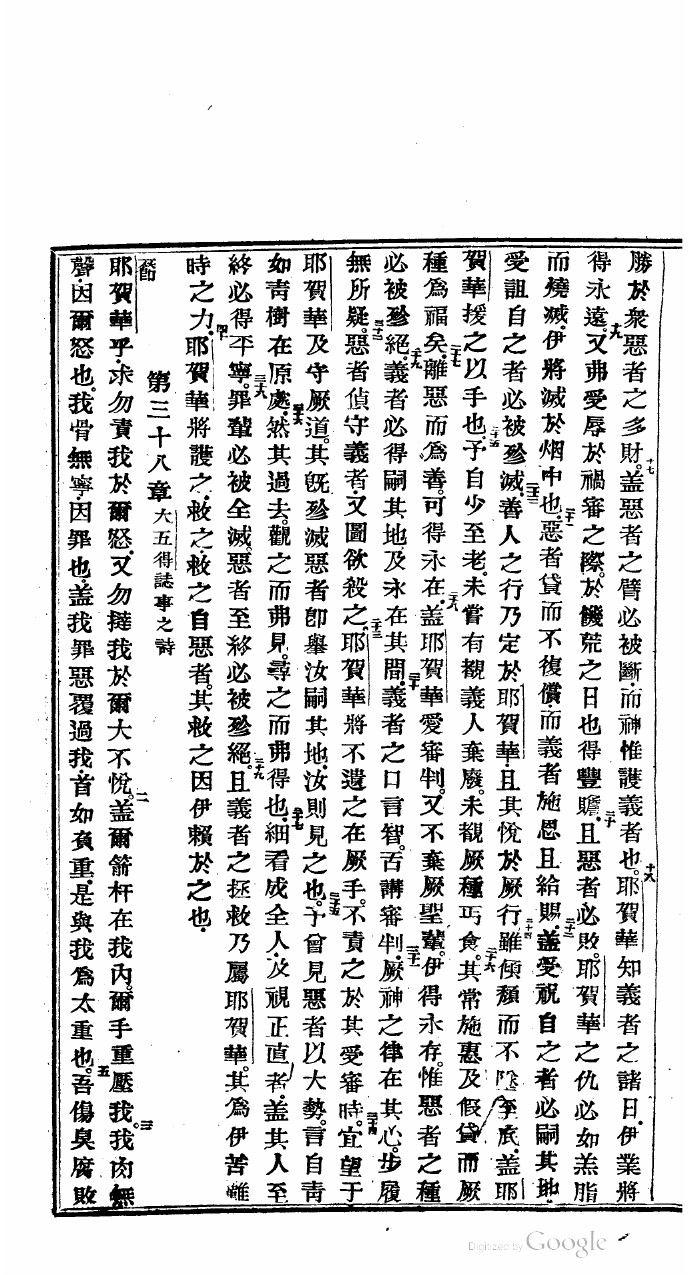 勝於衆惡者之多財。十七蓋惡者之臂必被斷。而神惟護義者也。十八耶賀華知義者之諸日。伊業將
得永遠。十九又弗受辱於禍審之際。於饑荒之日也得豐贍。二十且惡者必敗。耶賀華之仇必如羔脂
而燒滅。伊將滅於烟中也。二十一惡者貸而不復償而義者施恩且給賜。二十二蓋受祝自之者必嗣其地。
受詛自之者必被殄滅。二十三善人之行乃定於耶賀華。且其悅於厥行二十四雖傾頹而不陰至底。蓋耶
賀華援之以手也。二十五予自少至老。未嘗有覩義人棄廢。未覩厥種丐食。二十六其常施惠及假貸而厥
種爲福矣。二十七離惡而爲善。可得永在。二十八蓋耶賀華愛審判。又不棄厥聖輩。伊得永存。惟惡者之種
必被殄絕。二十九義者必得嗣其地及永在其間。三十義者之口言智。舌講審判。三十一厥神之律在其心。步履
無所疑。三十二惡者偵守義者。又圖欲殺之。三十三耶賀華將不遺之在厥手。不責之於其受審時。三十四宜望于
耶賀華及守厥道。其旣殄滅惡者卽舉汝嗣其地。汝則見之也。三十五予曾見惡者以大勢。言自靑
如靑樹在原處。三十六然其過去。觀之而弗見。尋之而弗得也。三十七細看成全人。及視正直者。蓋其人至
終必得平寧。三十八罪輩必被全滅。惡者至終必被殄絕。三十九且義者之拯救乃屬耶賀華。其爲伊苦難
時之力。四十耶賀華將護之。救之。救之自惡者。其救之因伊賴於之也。
第三十八章 大五得誌事之詩
耶賀華乎。求勿責我於爾怒。又勿撻我於爾大不悅。二蓋爾箭杆在我內。爾手重壓我。三我肉無
聲。因爾怒也。我骨無寧。因罪也。蓋我罪惡覆過我首如負重。是與我爲太重也。五吾傷臭腐敗
Digitized by Google